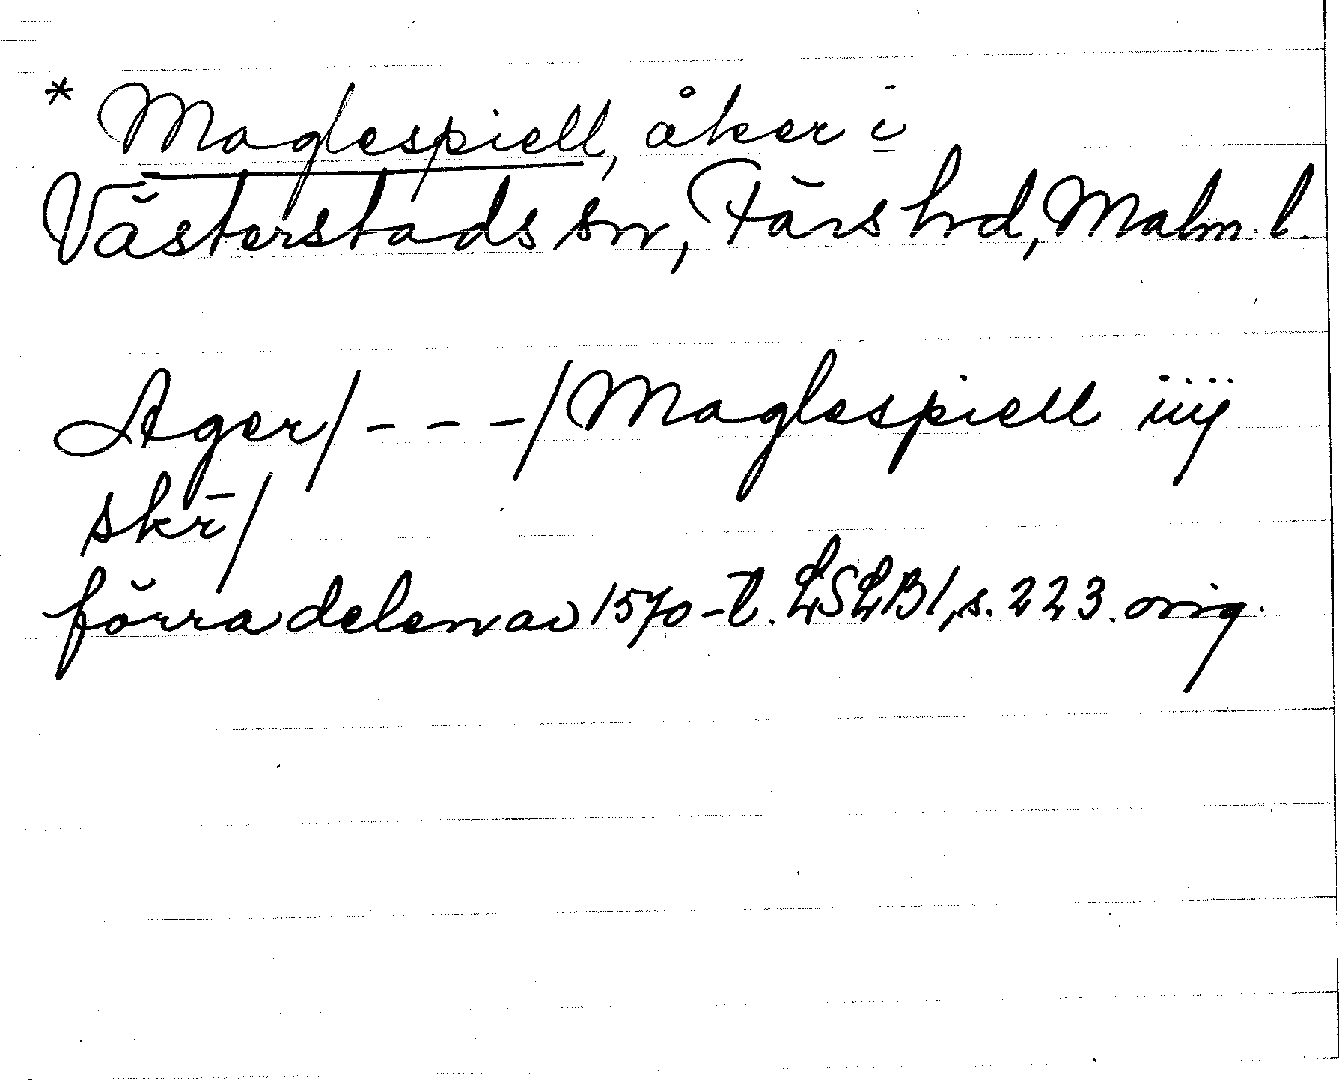 * Maglespiell, åker i
Västerstads sn, Färs hd, Malm. l.
Ager/ - - - / Maglespiell iiij
skr/
förra delen av 1570-t. LSLB 1, s. 223. orig.